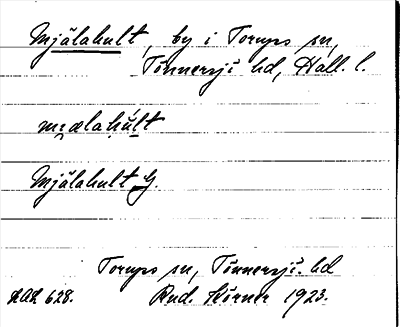 Mjälahult, by i Torups sn,
Tönnersjö hd, Hall. l.
mi̯ælahúlt
Mjälahult G.
Torups sn, Tönnersjö. hd
Rud. Körner 1923.
628.